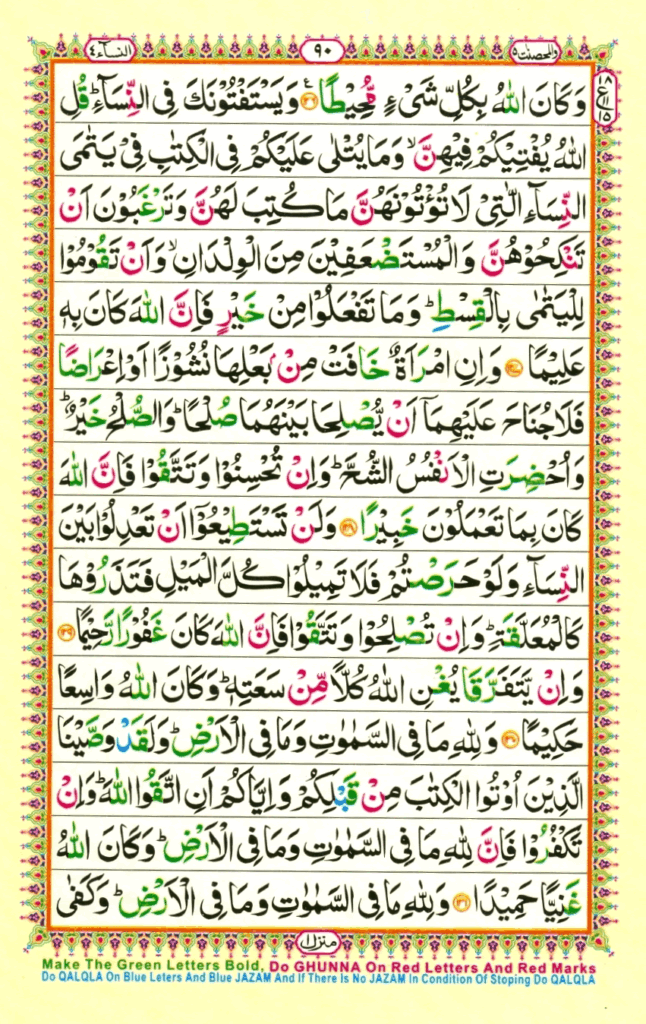 النساء ٤
٩٠
والمحصنت ٥
١٨
ع
١١
١٥
وَكَانَ اللّٰهُ بِكُلِّ شَیْءٍ مُّحِیْطًا ﴿١٢٦﴾ وَیَسْتَفْتُوْنَكَ فِی النِّسَآءِؕ قُلِ
اللّٰهُ یُفْتِیْكُمْ فِیْهِنَّۙ وَمَا یُتْلٰی عَلَیْكُمْ فِی الْكِتٰبِ فِیْ یَتٰمَی
النِّسَآءِ الّٰتِیْ لَا تُؤْتُوْنَهُنَّ مَا كُتِبَ لَهُنَّ وَتَرْغَبُوْنَ اَنْ
تَنْكِحُوْهُنَّ وَالْمُسْتَضْعَفِیْنَ مِنَ الْوِلْدَانِۙ وَاَنْ تَقُوْمُوْا
لِلْیَتٰمٰی بِالْقِسْطِؕ وَمَا تَفْعَلُوْا مِنْ خَیْرٍ فَاِنَّ اللّٰهَ كَانَ بِهٖ
عَلِیْمًا ﴿١٢٧﴾ وَاِنِ امْرَاَةٌ خَافَتْ مِنْۢ بَعْلِهَا نُشُوْزًا اَوْ اِعْرَاضًا
فَلَا جُنَاحَ عَلَیْهِمَاۤ اَنْ یُّصْلِحَا بَیْنَهُمَا صُلْحًاؕ وَالصُّلْحُ خَیْرٌؕ
وَاُحْضِرَتِ الْاَنْفُسُ الشُّحَّؕ وَاِنْ تُحْسِنُوْا وَتَتَّقُوْا فَاِنَّ اللّٰهَ
كَانَ بِمَا تَعْمَلُوْنَ خَبِیْرًا ﴿١٢٨﴾ وَلَنْ تَسْتَطِیْعُوْۤا اَنْ تَعْدِلُوْا بَیْنَ
النِّسَآءِ وَلَوْ حَرَصْتُمْ فَلَا تَمِیْلُوْا كُلَّ الْمَیْلِ فَتَذَرُوْهَا
كَالْمُعَلَّقَةِؕ وَاِنْ تُصْلِحُوْا وَتَتَّقُوْا فَاِنَّ اللّٰهَ كَانَ غَفُوْرًا رَّحِیْمًا ﴿١٢٩﴾
وَاِنْ یَّتَفَرَّقَا یُغْنِ اللّٰهُ كُلًّا مِّنْ سَعَتِهٖؕ وَكَانَ اللّٰهُ وَاسِعًا
حَكِیْمًا ﴿١٣٠﴾ وَلِلّٰهِ مَا فِی السَّمٰوٰتِ وَمَا فِی الْاَرْضِؕ وَلَقَدْ وَصَّیْنَا
الَّذِیْنَ اُوْتُوا الْكِتٰبَ مِنْ قَبْلِكُمْ وَاِیَّاكُمْ اَنِ اتَّقُوا اللّٰهَؕ وَاِنْ
تَكْفُرُوْا فَاِنَّ لِلّٰهِ مَا فِی السَّمٰوٰتِ وَمَا فِی الْاَرْضِؕ وَكَانَ اللّٰهُ
غَنِیًّا حَمِیْدًا ﴿١٣١﴾ وَلِلّٰهِ مَا فِی السَّمٰوٰتِ وَمَا فِی الْاَرْضِؕ وَكَفٰی
منزل ١
Make The Green Letters Bold, Do GHUNNA On Red Letters And Red Marks
Do QALQLA On Blue Leters And Blue JAZAM And If There Is No JAZAM In Condition Of Stoping Do QALQLA